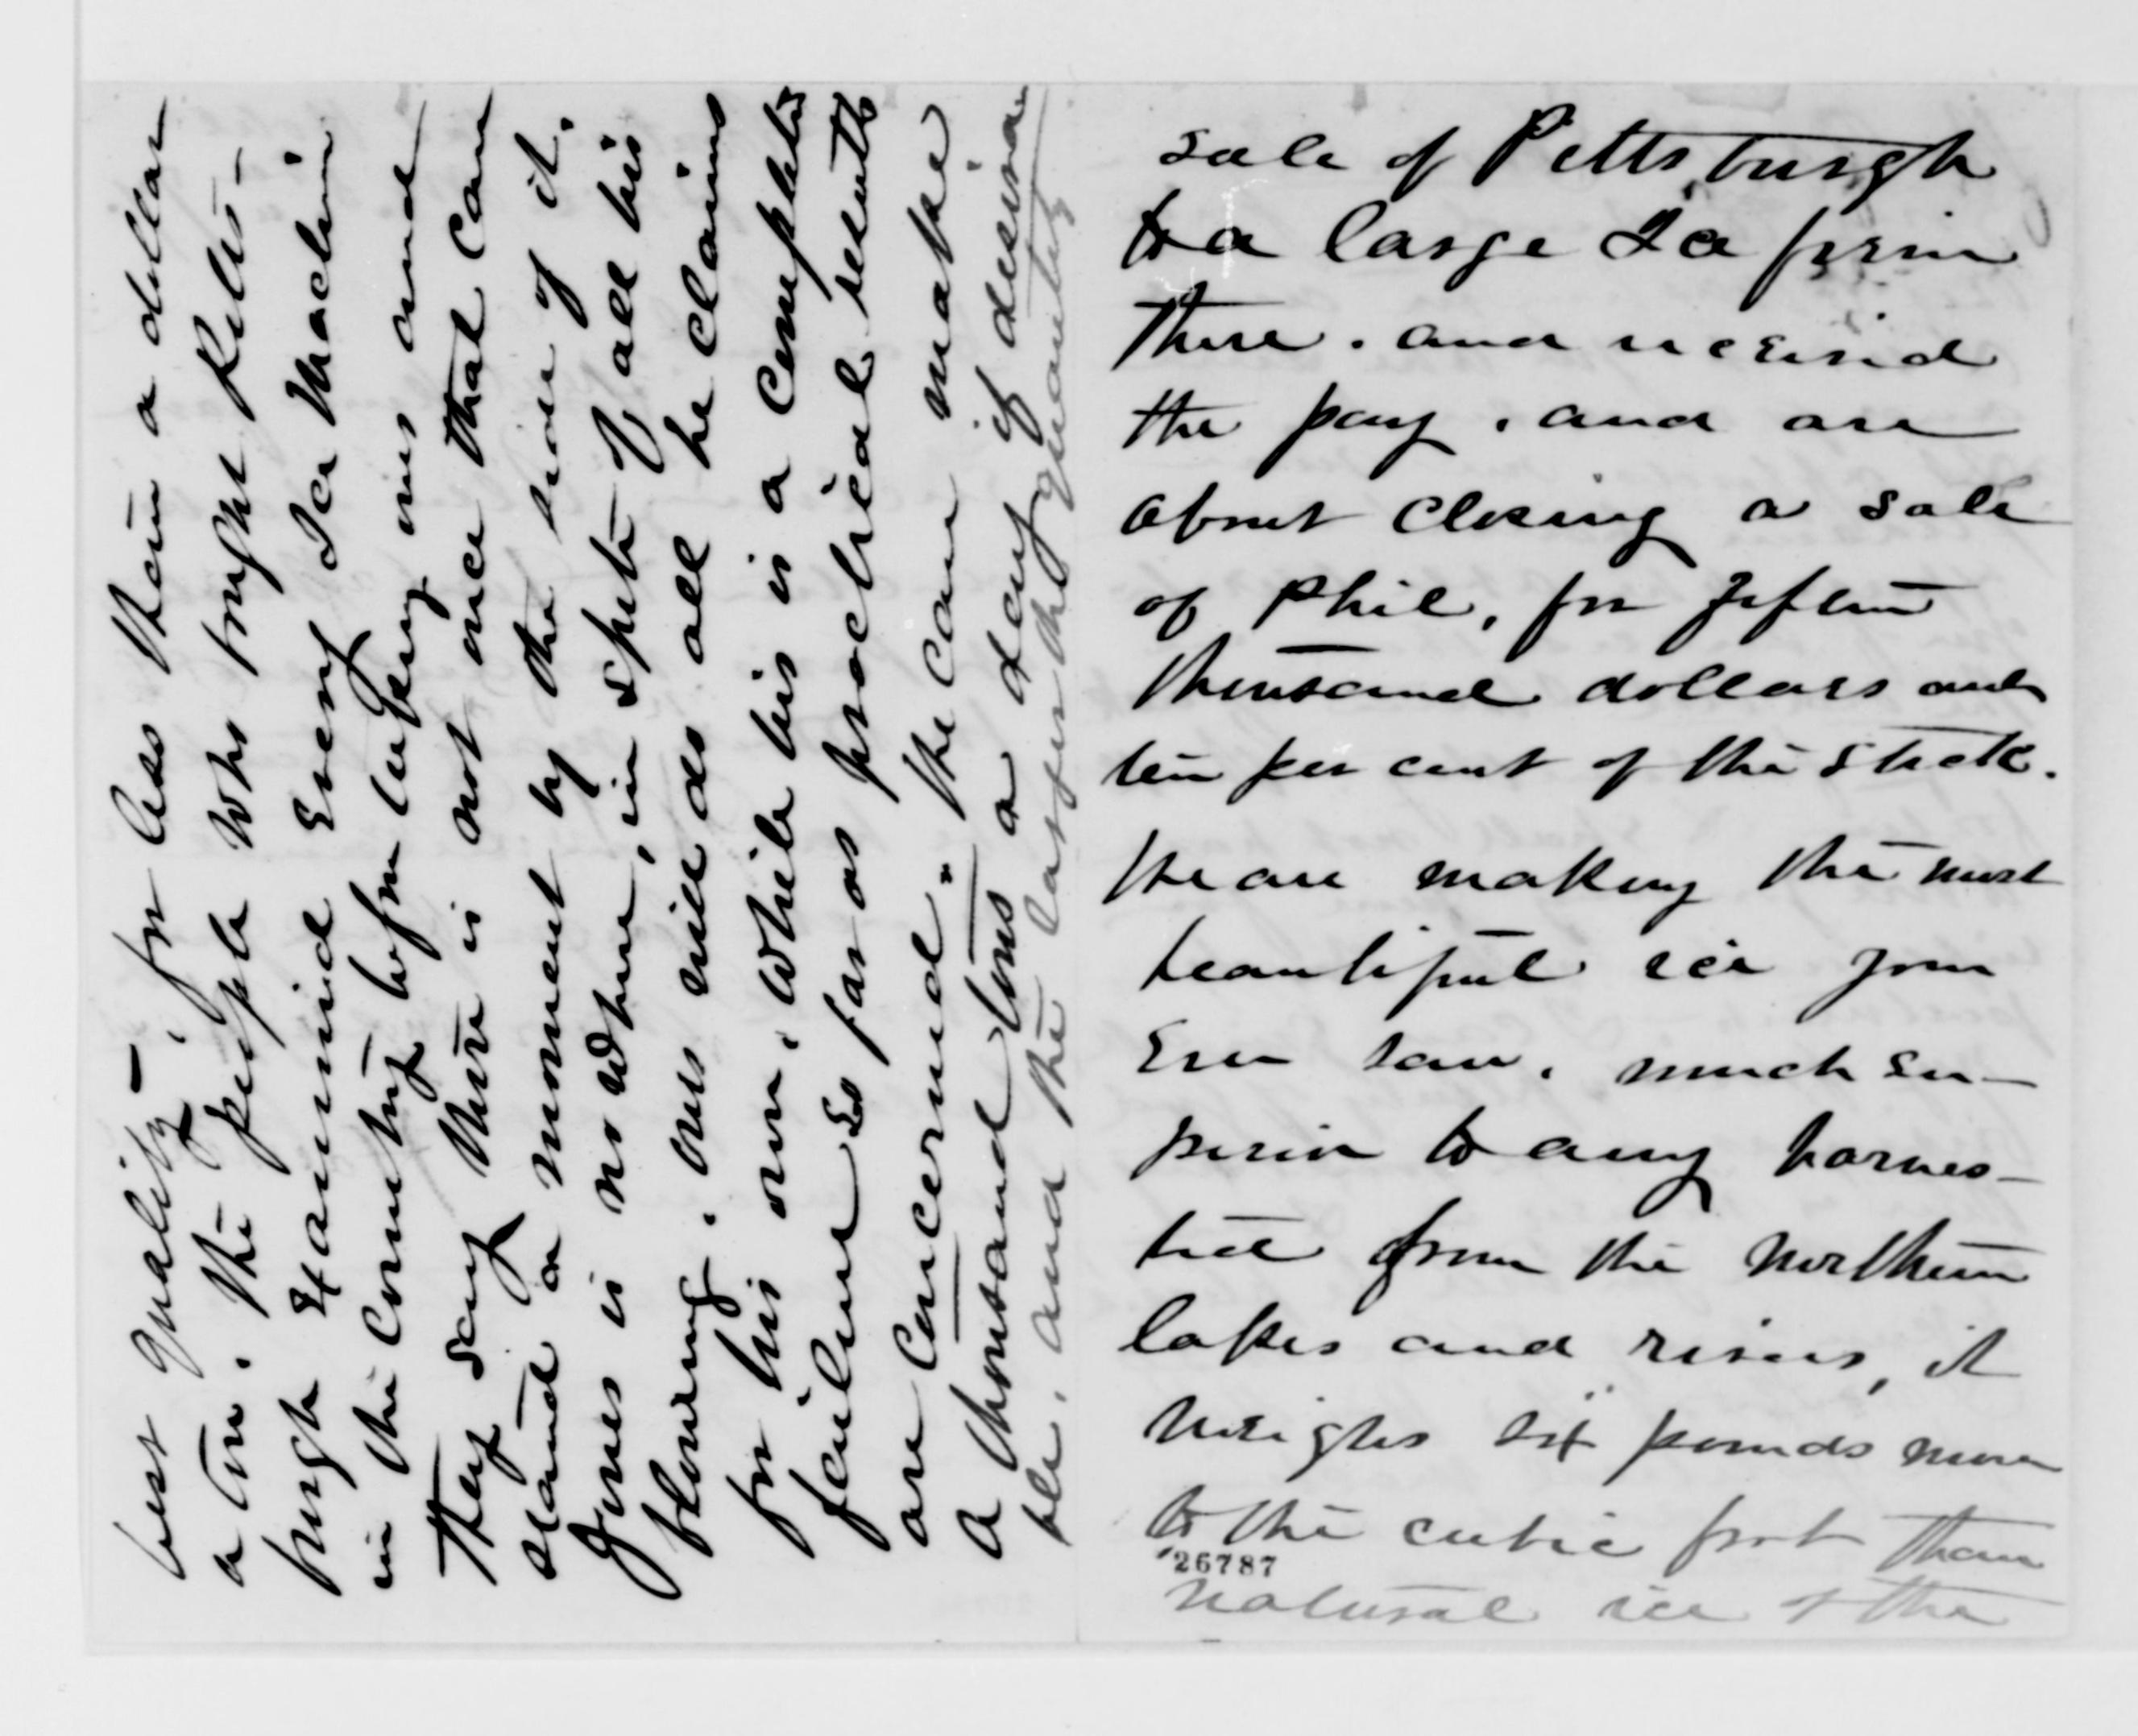 sale of Pittsburgh
to a large Ice firm
there. and received
the pay. and are
about closing a sale
of Phil, for fifteen
thousand dollars and
ten per cent of the stock.
We are making the most
beautiful ice you
Ever saw. much su-
perior to any harves-
ted from the northern
lakes and rivers, it
weighs six pounds more
to the cubic foot than
natural ice & the
26787
best quality, for less than a dollar
a ton. The people who bought Pitts-
burgh Examined Every Ice Machine
in the Country before buying ours and
They say there is not once that can
stand a moment by the side of it.
Jones is no where, in spite of all his
blowing. ours will do all he claims
for his own. while his is a complete
failure so far as practical results
are concerned. We can make
a thousand tons a day if desira-
ble. and the larger the quantity